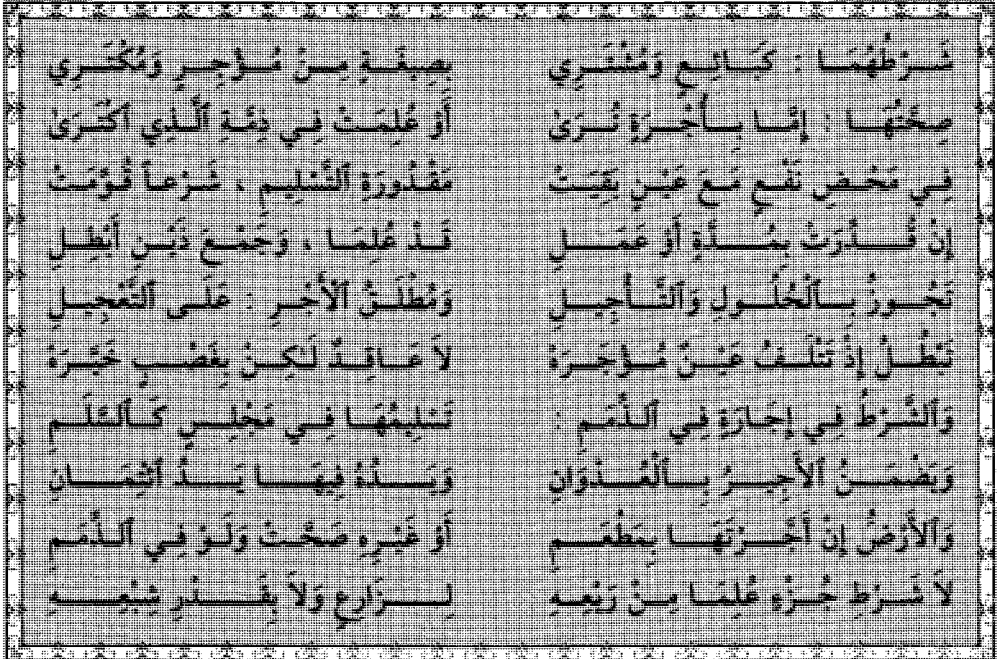 شَرْطُهُمَا : كَبَائِعٍ وَمُشْتَرِي بِصِيغَةٍ مِنْ مُؤْجِرٍ وَمُكْتَرِي
صِحَّتُهَا : إِمَّا بِأُجْرَةٍ تُرَىٰ أَوْ عُلِمَتْ فِي ذِمَّةِ ٱلَّذِي ٱكْتَرَىٰ
فِي مَحْضِ نَفْعٍ مَعَ عَيْنٍ بَقِيَتْ مَقْدُورَةِ ٱلتَّسْلِيمِ ، شَرْعاً قُوِّمَتْ
إِنْ قُدِّرَتْ بِمُدَّةٍ أَوْ عَمَلِ قَدْ عُلِمَا ، وَجَمْعَ ذَيْنِ أَبْطِلِ
تَجُوزُ بِٱلْحُلُولِ وَٱلتَّأْجِيلِ وَمُطْلَقُ ٱلْأَجْرِ : عَلَى ٱلتَّعْجِيلِ
تَبْطُلُ إِذْ تَتْلَفُ عَيْنٌ مُؤْجَرَهْ لاَ عَاقِدٌ لَٰكِنْ بِغَصْبٍ خَيَّرَهْ
وَٱلشَّرْطُ فِي إِجَارَةٍ فِي ٱلذِّمَمِ : تَسْلِيمُهَا فِي مَجْلِسٍ كَٱلسَّلَمِ
وَيَضْمَنُ ٱلأَجِيرُ بِٱلْعُدْوَانِ وَيَدُهُ فِيهَا يَدُ ٱئْتِمَانِ
وَٱلأَرْضُ إِنْ أَجَّرْتَهَا بِمَطْعَمِ أَوْ غَيْرِهِ صَحَّتْ وَلَوْ فِي ٱلذِّمَمِ
لاَ شَرْطِ جُزْءٍ عُلِمَا مِنْ رَيْعِهِ لِزَارِعٍ وَلاَ بِقَدْرِ شِبْعِهِ